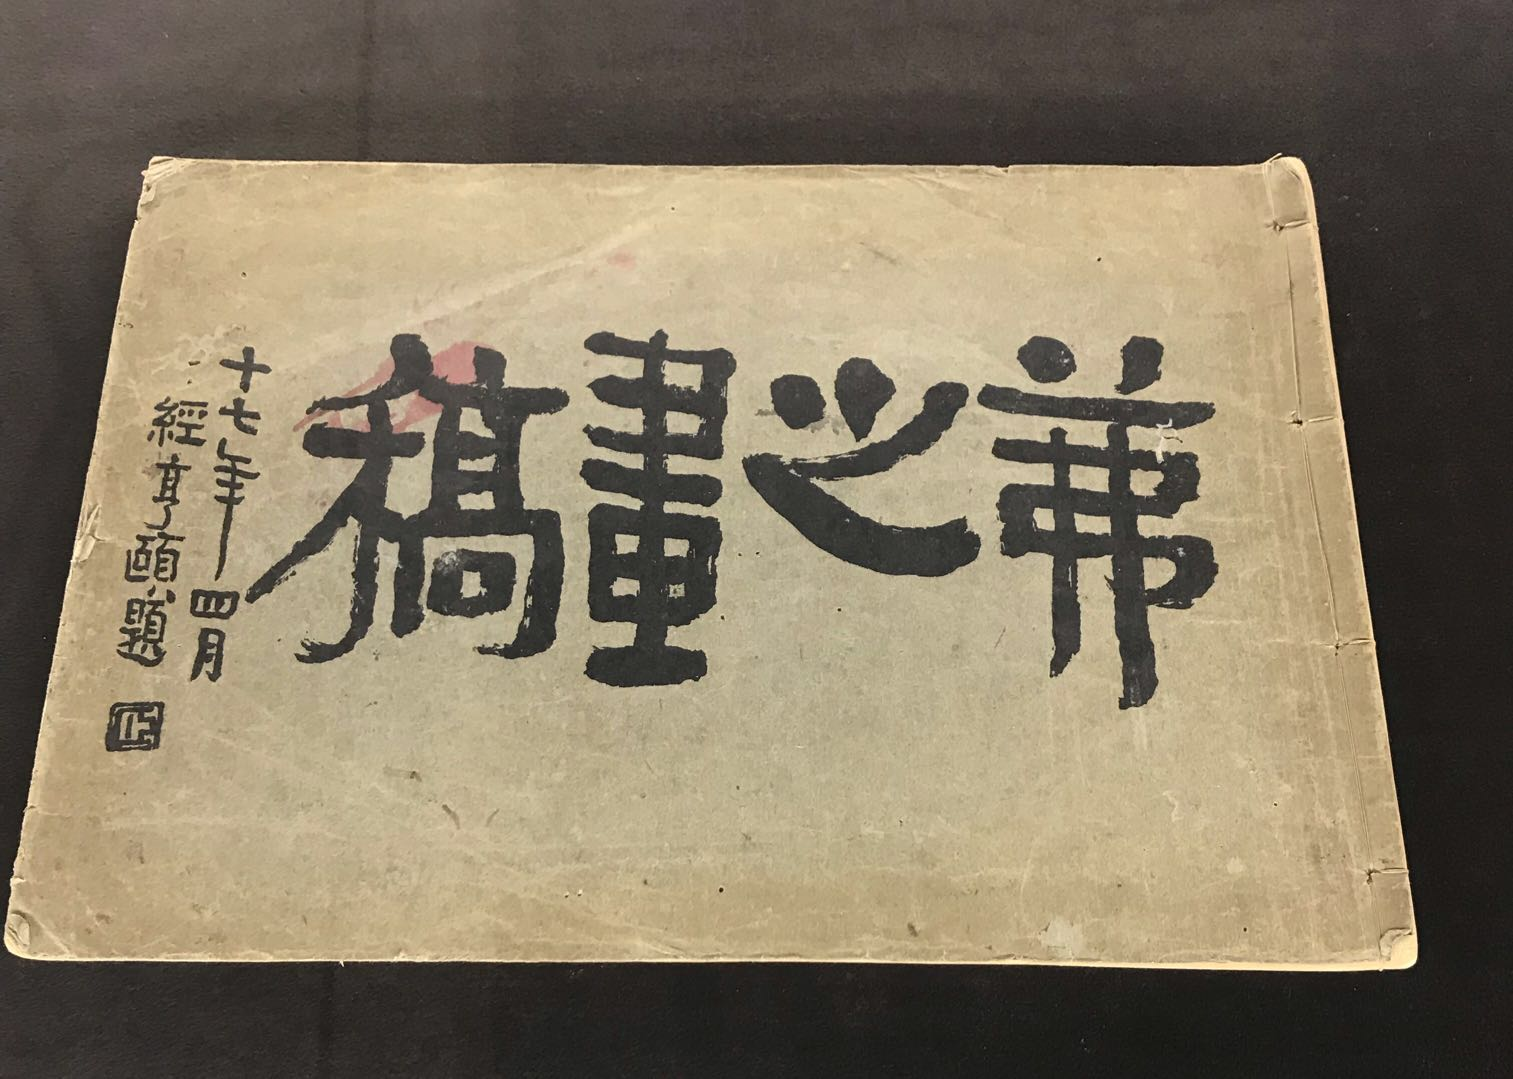 茀之畫稿
十七年四月
經亨頤題